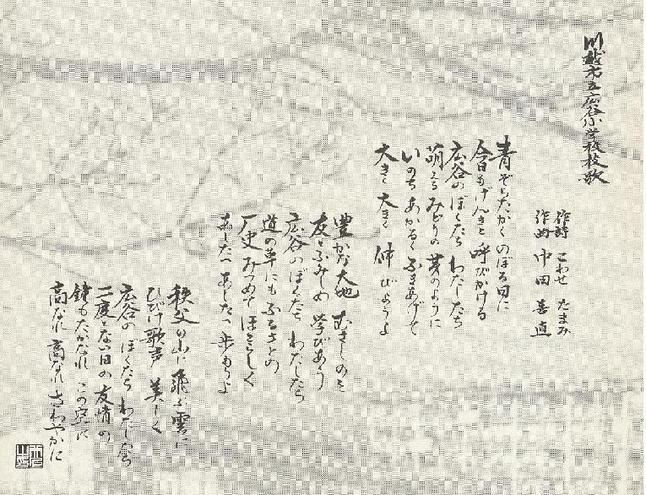 川越市立広谷小学校校歌
作詩 こわせ たまみ
作曲 中田 喜直
青ぞらたかくのぼる日に
今日もげんきと呼びかける
広谷のぼくたち わたしたち
萌えるみどりの芽のように
いのちあかるく ふきあげて
大きく 大きく 伸びようよ
豊かな大地 むさしのを
友とふみしめ 学びあう
広谷のぼくたち わたしたち
道の草にも ふるさとの
歴史みつめて ほこらしく
あしたへ あしたへ 歩もうよ
秩父の山に 飛ぶ雲に
ひびけ歌声 美しく
広谷のぼくたち わたしたち
二度とない日の 友情の
鐘もたかなれ この空に
高なれ 高なれ さわやかに